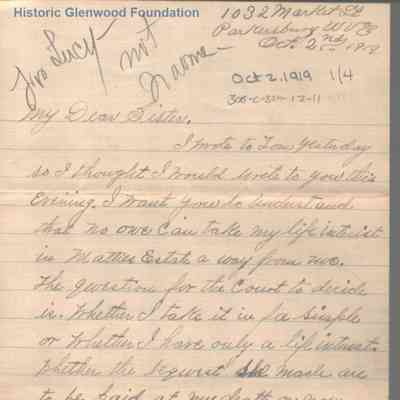 Historic Glenwood Foundation
1032 Market St
Parkersburg W Va
Oct. 2nd 1919
Lucy not Naomi
Oct 2, 1919 1/4
My Dear Sister.
I wrote to Lou yesturday
so I thought I would write to you this
Evening. I want you do understand
that no one Can take my life intrist
in Matties Estate a way from me.
The question for the Court to decide
is. Whether I take it in fee simple
or Whether I have only a life intrest.
Whether the request she made are
to be paid at my death or now